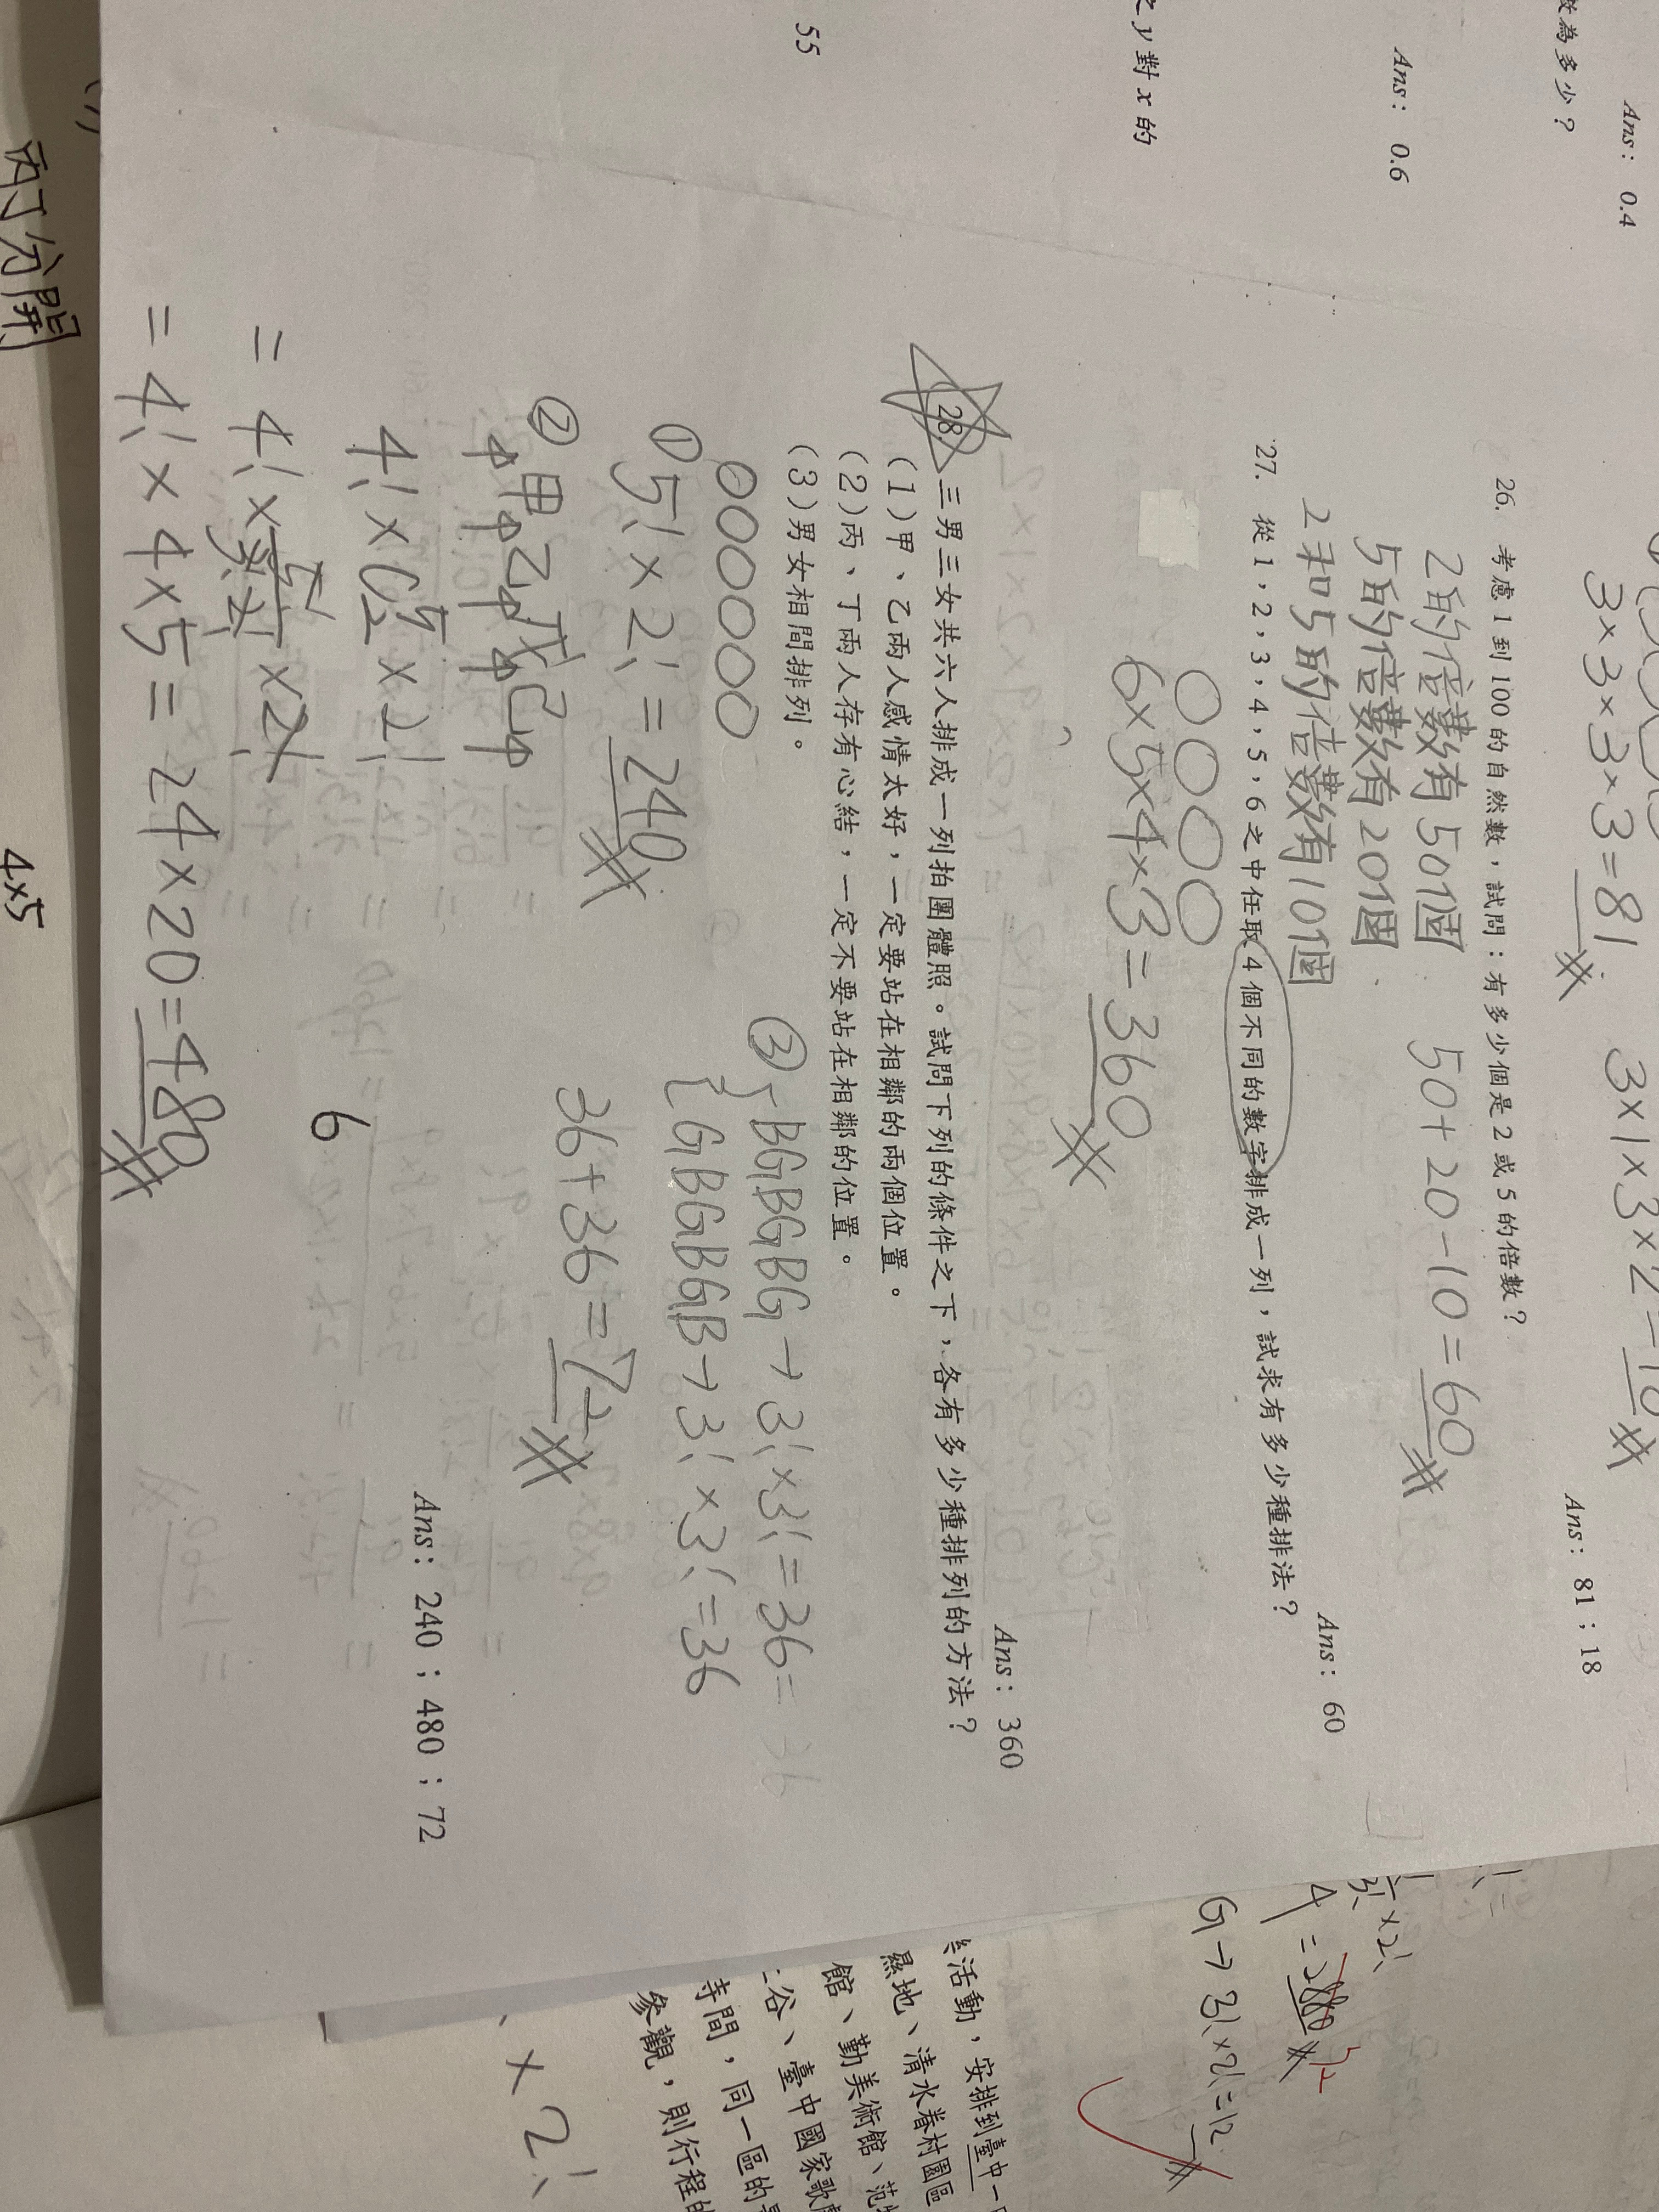 Ans： 0.4
數為多少？
Ans： 0.6
之 y 對 x 的
55
3×3×3×3=81
3×1×3×2=18
Ans： 81；18
26. 考慮 1 到 100 的自然數，試問：有多少個是 2 或 5 的倍數？
2的倍數有50個
5的倍數有20個
2和5的倍數有10個
50+20-10=60
Ans： 60
27. 從 1，2，3，4，5，6 之中任取 4 個不同的數字排成一列，試求有多少種排法？
0000
6×5×4×3=360
Ans： 360
28. 三男三女共六人排成一列拍團體照。試問下列的條件之下，各有多少種排列的方法？
(1)甲、乙兩人感情太好，一定要站在相鄰的兩個位置。
(2)丙、丁兩人存有心結，一定不要站在相鄰的位置。
(3)男女相間排列。
000000
① 5!×2!=240
② 甲乙戊己
4!×C⁵₂×2!
=4!×5!/3!2!×2!
=4!×4×5=24×20=480
③ BGBGBG→3!×3!=36=36
GBGBGB→3!×3!=36
36+36=72
6
Ans： 240；480；72
丙丁分開
4×5
×2!
G→3!×2!=12
活動，安排到臺中一
濕地、清水眷村園區
館、勤美術館、范
谷、臺中國家歌
時間，同一區的
參觀，則行程的
×2!